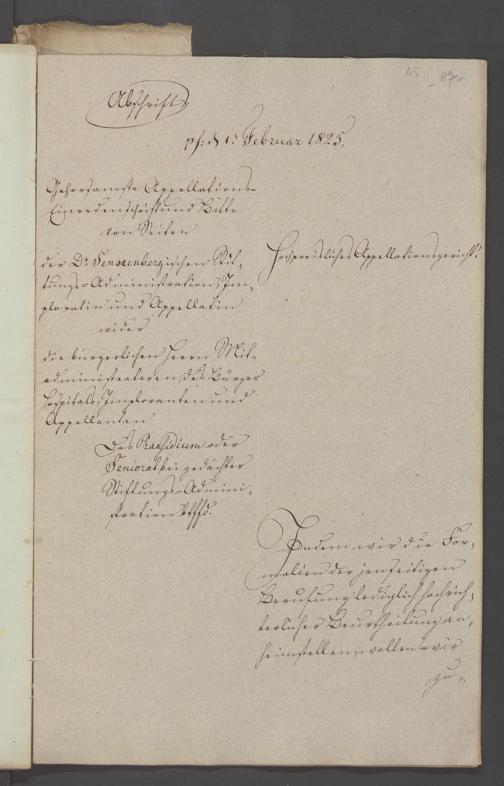 45
Abschrift
ps: d 15 Februar 1825.
Gehorsamste Appellations-
Einredenschrift und Bitte
von Seiten
der Dr. Senckenbergischen Stif-
tungs-Administration, Im-
ploratin und Appellatin
wider
die bürgerlichen Herrn Mit-
administratoren des Bürger
hospitals, Imploranten und
Appellanten
Das Praesidium oder
Seniorat bei gedachter
Stiftungs-Admini-
stration btffd.
Hochpreisliches Appellationsgericht!
Indem wir die For-
malien der jenseitigen
Berufung lediglich hochrich-
terlicher Beurtheilung an-
heimstellen, wollen wir
zu-